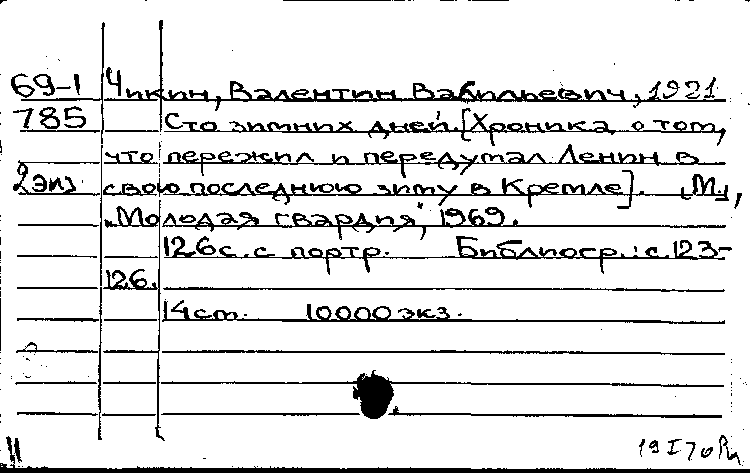 69-1 Чикин, Валентин Васильевич, 1921
785 Сто зимних дней. [Хроника о том,
что пережил и передумал Ленин в
2 экз свою последнюю зиму в Кремле]. М.,
„Молодая гвардия", 1969.
126 с. с портр. Библиогр.: с. 123-
126.
14 см. 10000 экз.
19 I 70